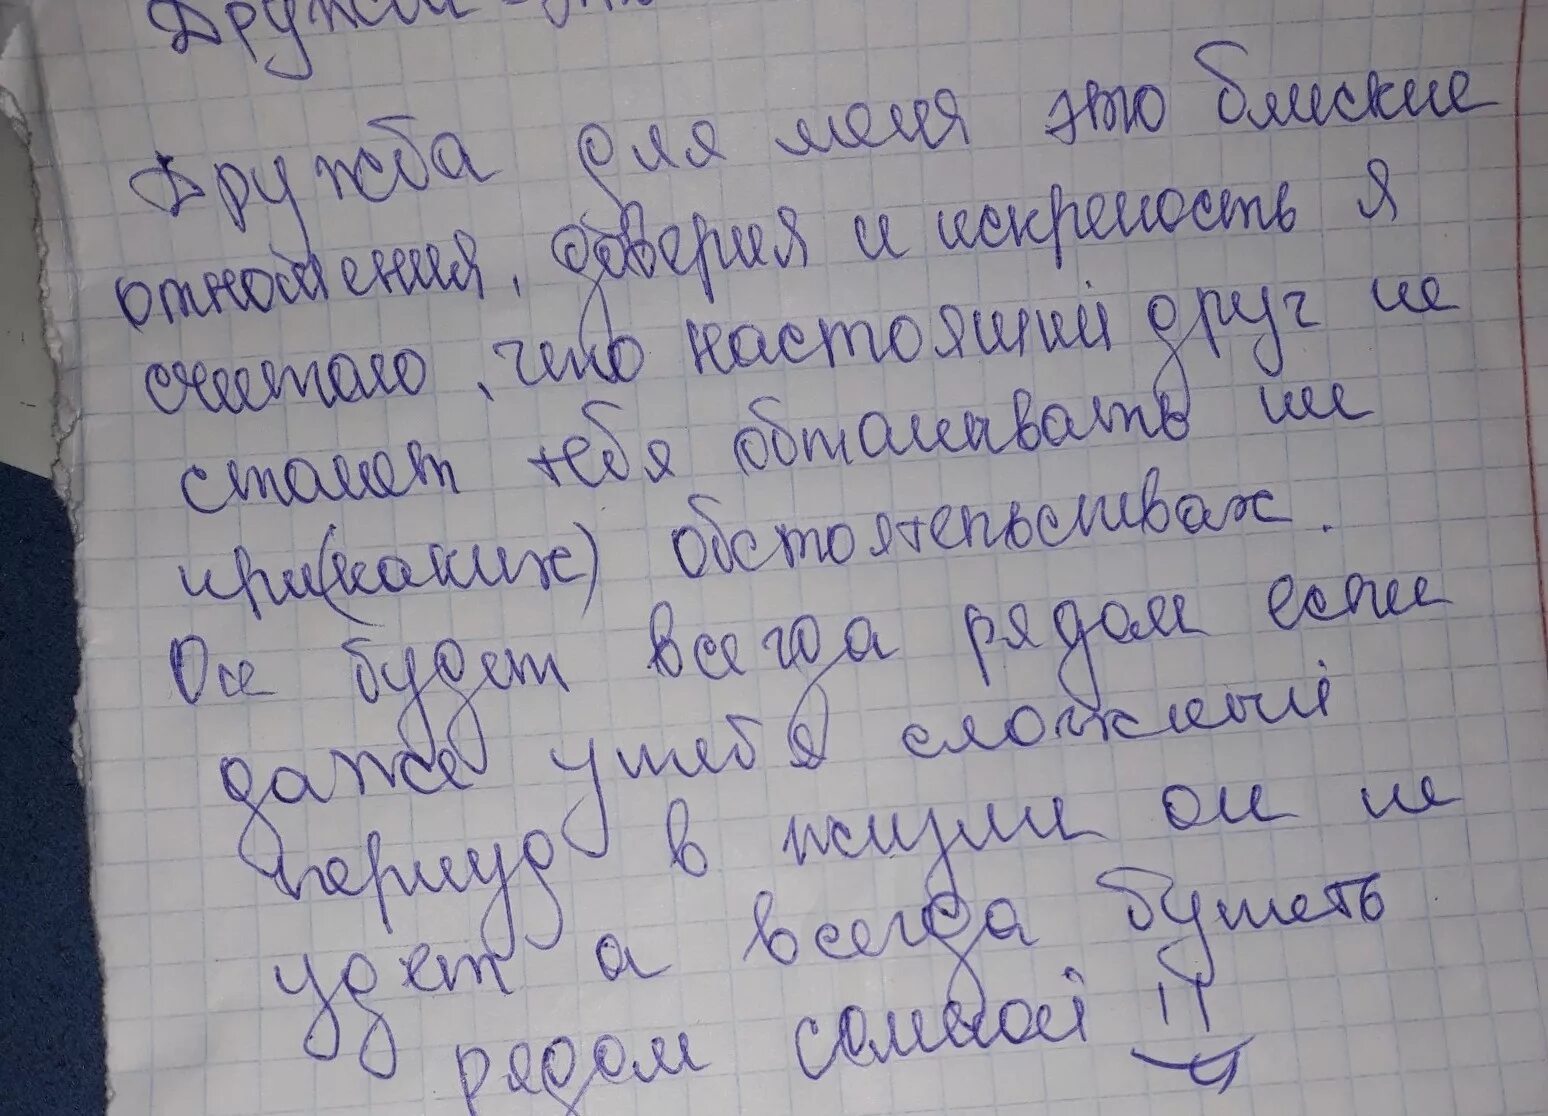 Дружба
Дружба для меня это блиские
отношения, доверия и искреность я
считаю, что настоящий друг не
станет тебя обманывать ни
при(каких) обстоятельсивах.
Он будет всегда рядом если
даже у тебя сложный
периуд в жизни он не
удет а всегда будеть
рядом сомной !!